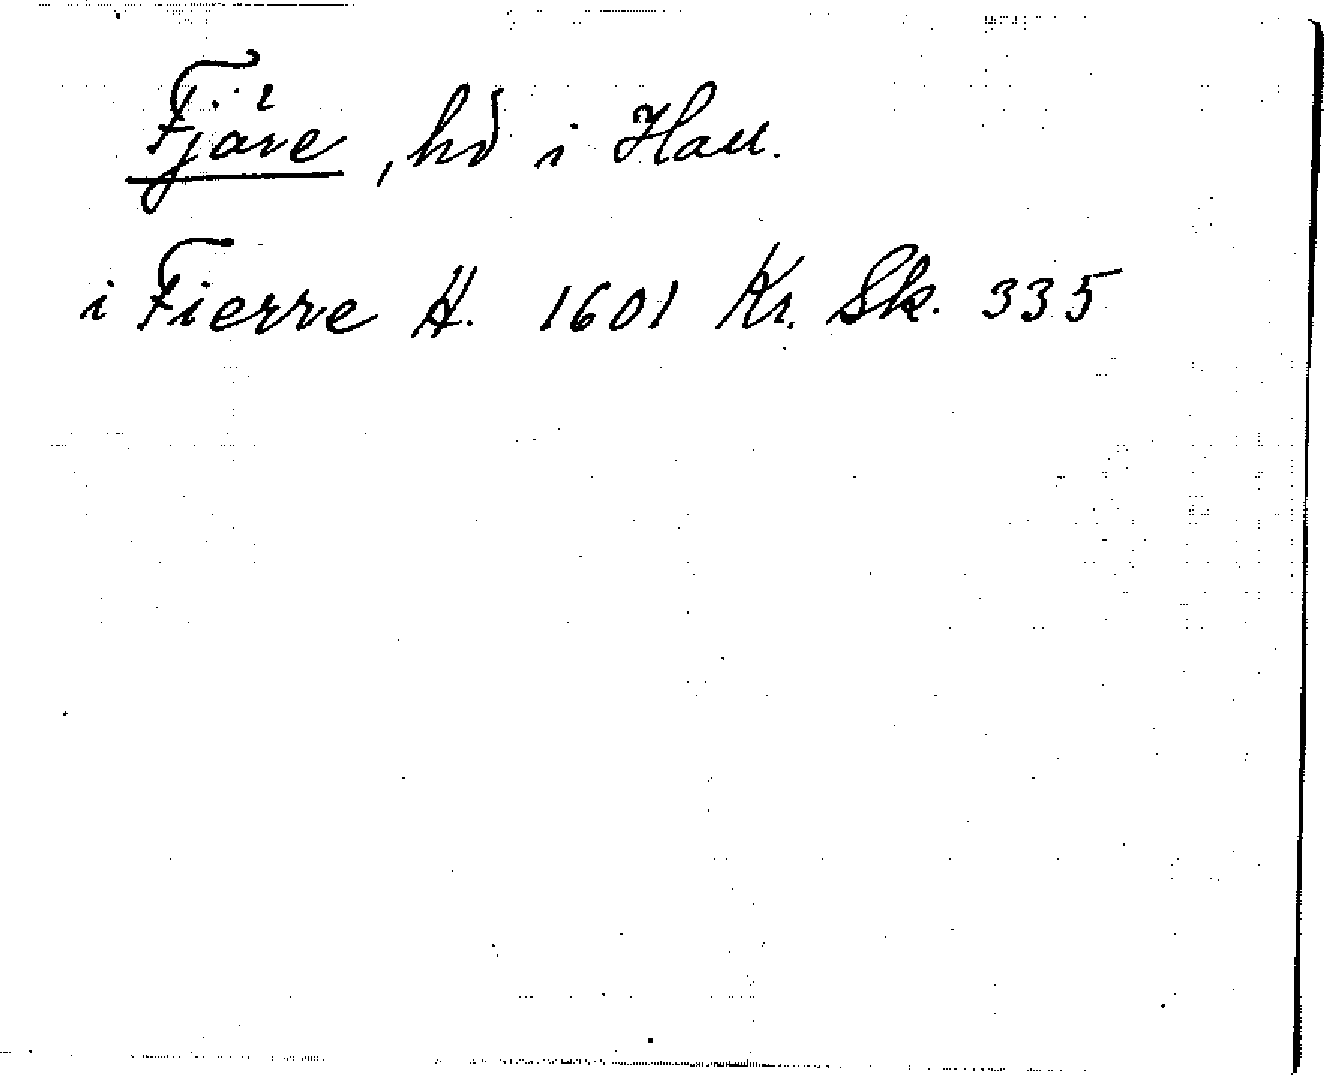 Fjäre, hd i Hall.
i Fierre H. 1601 Kr. Sk. 335